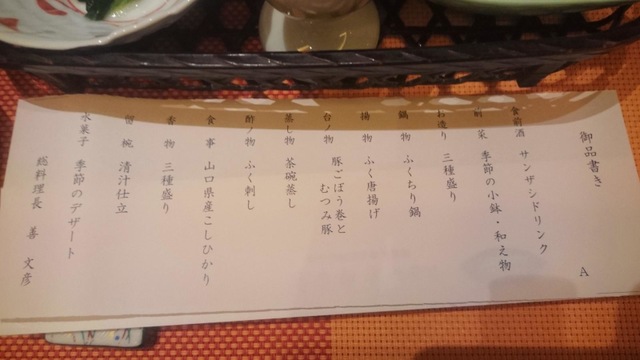 御品書き A
食前酒 サンザシドリンク
前菜 季節の小鉢・和え物
お造り 三種盛り
鍋物 ふくちり鍋
揚物 ふく唐揚げ
台ノ物 豚ごぼう巻と
むつみ豚
蒸し物 茶碗蒸し
酢ノ物 ふく刺し
食事 山口県産こしひかり
香物 三種盛り
留椀 清汁仕立
水菓子 季節のデザート
総料理長 善 文彦